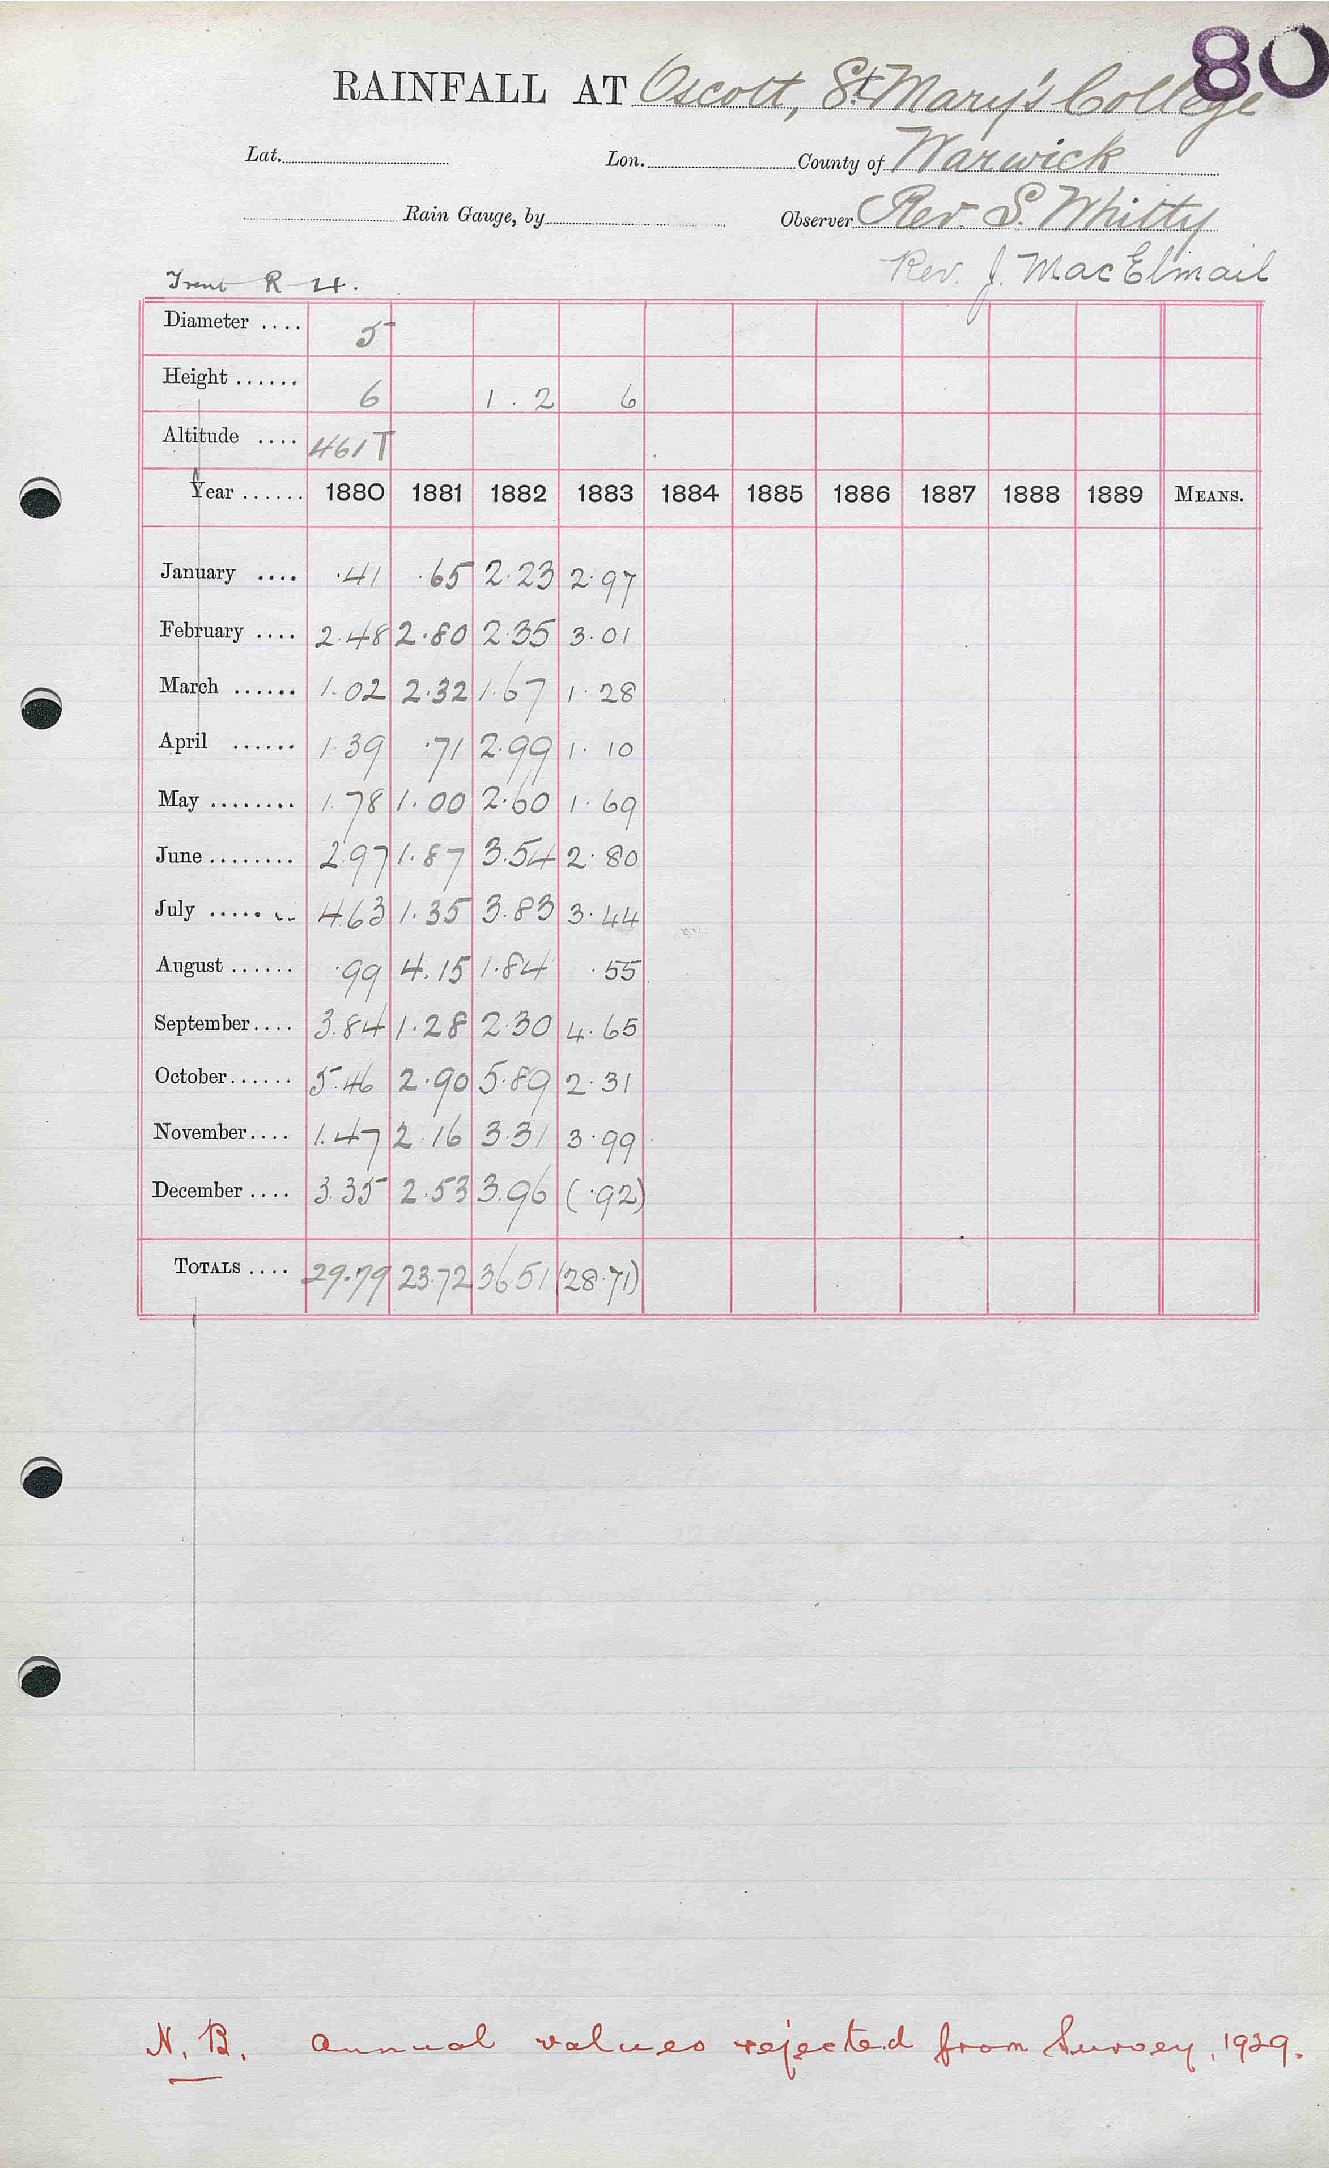 80
RAINFALL AT Oscott, St. Mary's College
Lat. Lon. County of Warwick
Rain Gauge, by Observer Rev. S. Whitty
Rev. J. MacElmail
Trent R 4.
Diameter .... 5
Height ...... 6 1.2 6
Altitude .... 461T
Year ...... 1880 1881 1882 1883 1884 1885 1886 1887 1888 1889 MEANS.
January .... .41 .65 2.23 2.97
February .... 2.48 2.80 2.35 3.01
March ...... 1.02 2.32 1.67 1.28
April ...... 1.39 .71 2.99 1.10
May ........ 1.78 1.00 2.60 1.69
June ........ 2.97 1.87 3.54 2.80
July ....... 4.63 1.35 3.83 3.44
August ...... .99 4.15 1.84 .55
September .... 3.84 1.28 2.30 4.65
October ...... 5.46 2.90 5.89 2.31
November .... 1.47 2.16 3.31 3.99
December .... 3.35 2.53 3.96 (.92)
TOTALS .... 29.79 23.72 36.51 (28.71)
N.B. Annual values rejected from Survey, 1929.